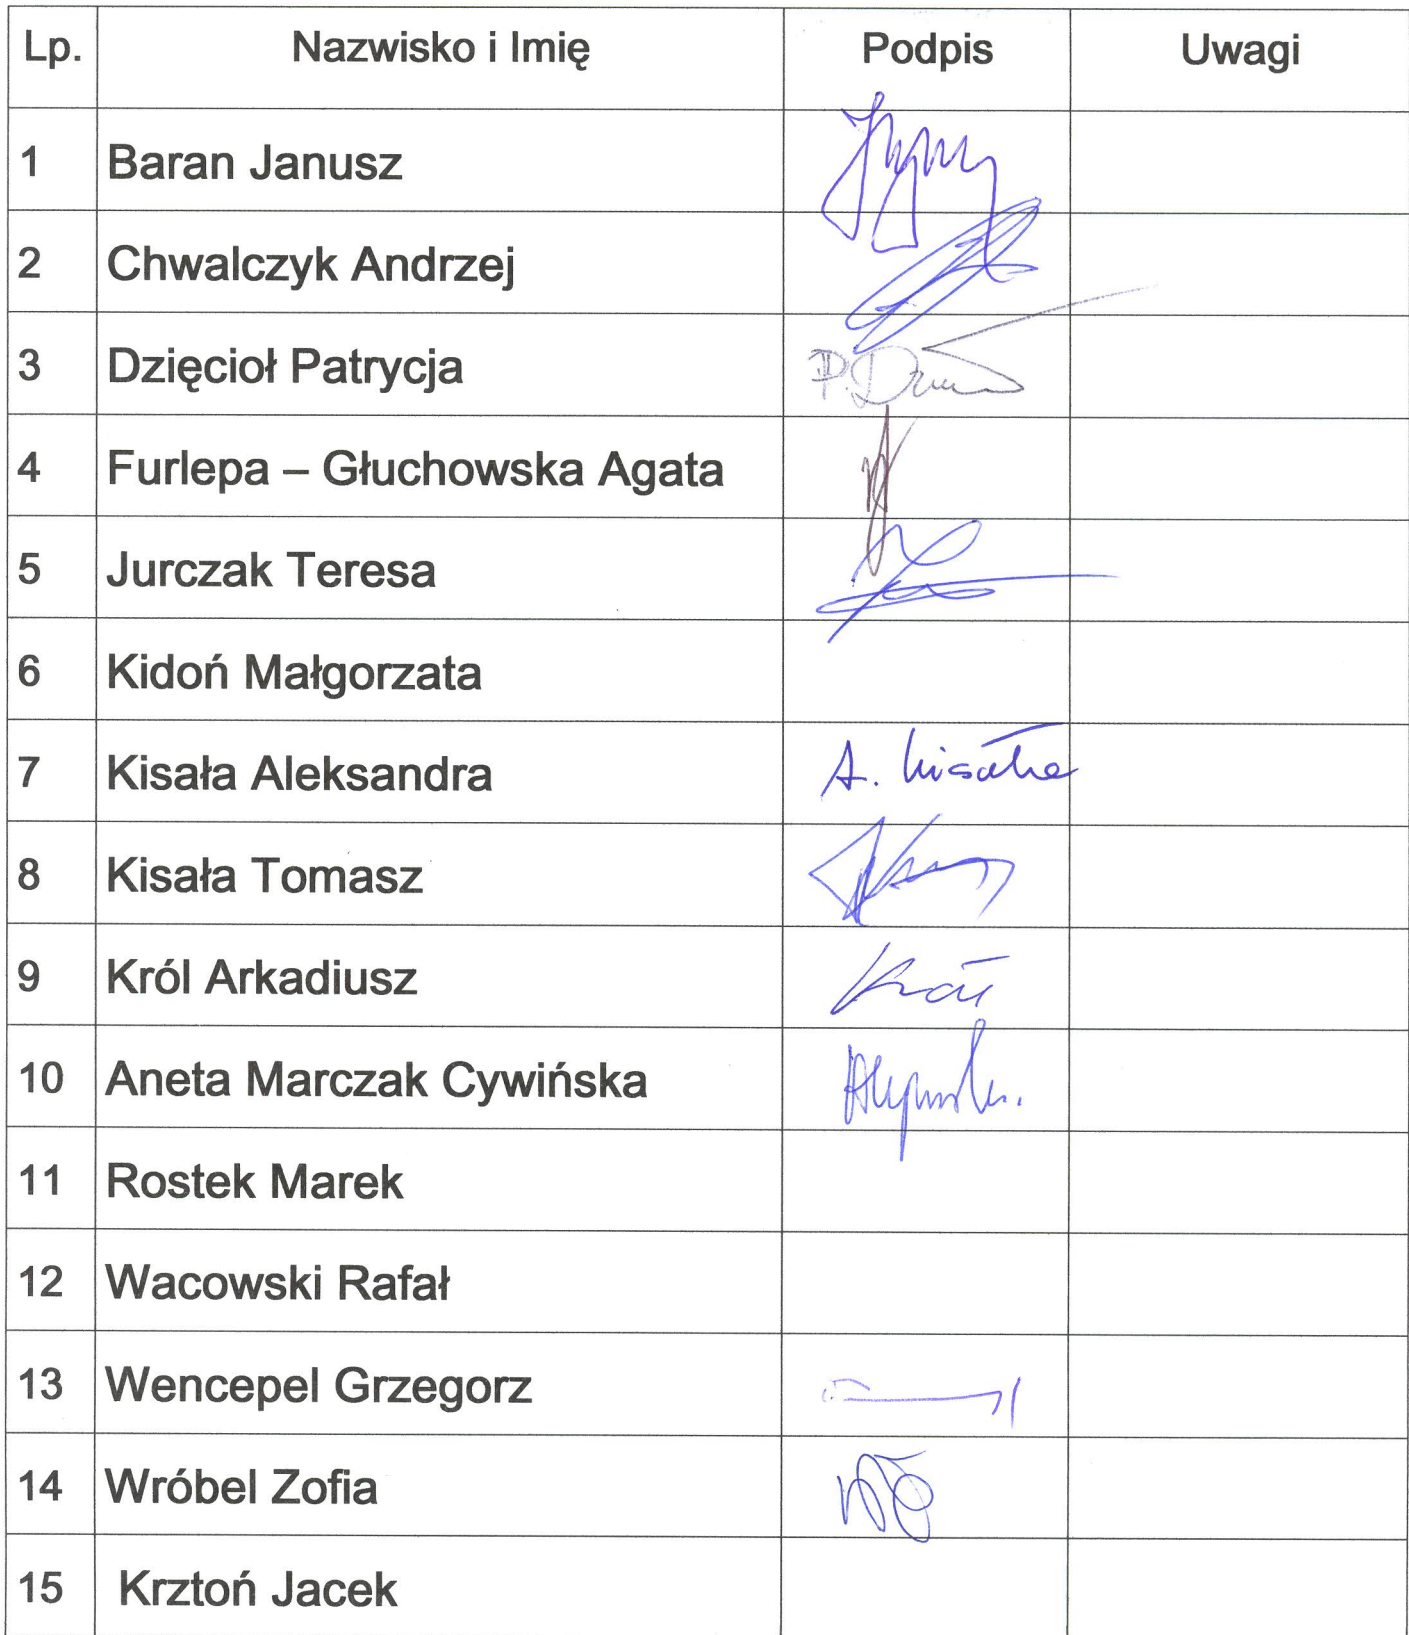 Lp. Nazwisko i Imię Podpis Uwagi
1 Baran Janusz
2 Chwalczyk Andrzej
3 Dzięcioł Patrycja
4 Furlepa – Głuchowska Agata
5 Jurczak Teresa
6 Kidoń Małgorzata
7 Kisała Aleksandra A. Kisała
8 Kisała Tomasz
9 Król Arkadiusz Król
10 Aneta Marczak Cywińska
11 Rostek Marek
12 Wacowski Rafał
13 Wencepel Grzegorz
14 Wróbel Zofia
15 Krztoń Jacek